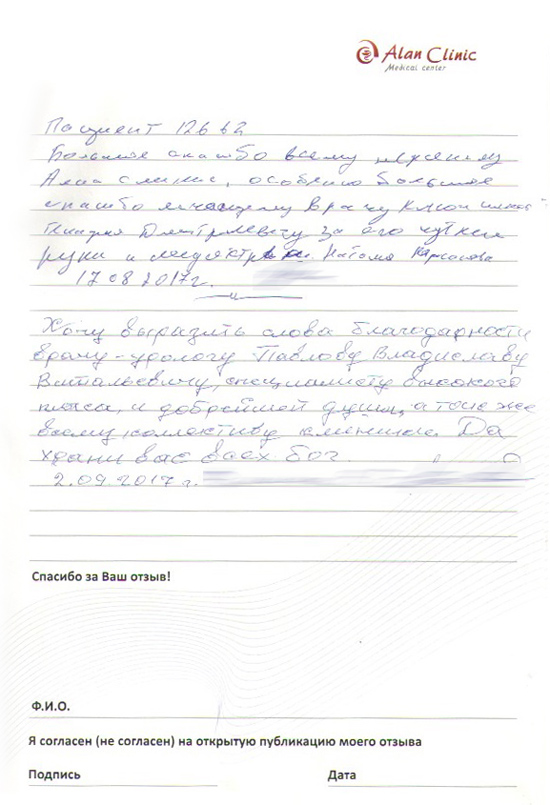 Alan Clinic
Medical center
Пациент 12662
Большое спасибо всему
Алан клиник, особенно большое
спасибо лечащему врачу
Дмитриевичу за его чуткие
руки и
17 08 2017г.
Хочу выразить слова благодарности
врачу-урологу Павлову Владиславу
Витальевичу, специалисту высокого
класса, и добрейшей души, а также
всему коллективу клиники. Да
храни вас всех бог.
2.09.2017г.
Спасибо за Ваш отзыв!
Ф.И.О.
Я согласен (не согласен) на открытую публикацию моего отзыва
Подпись Дата